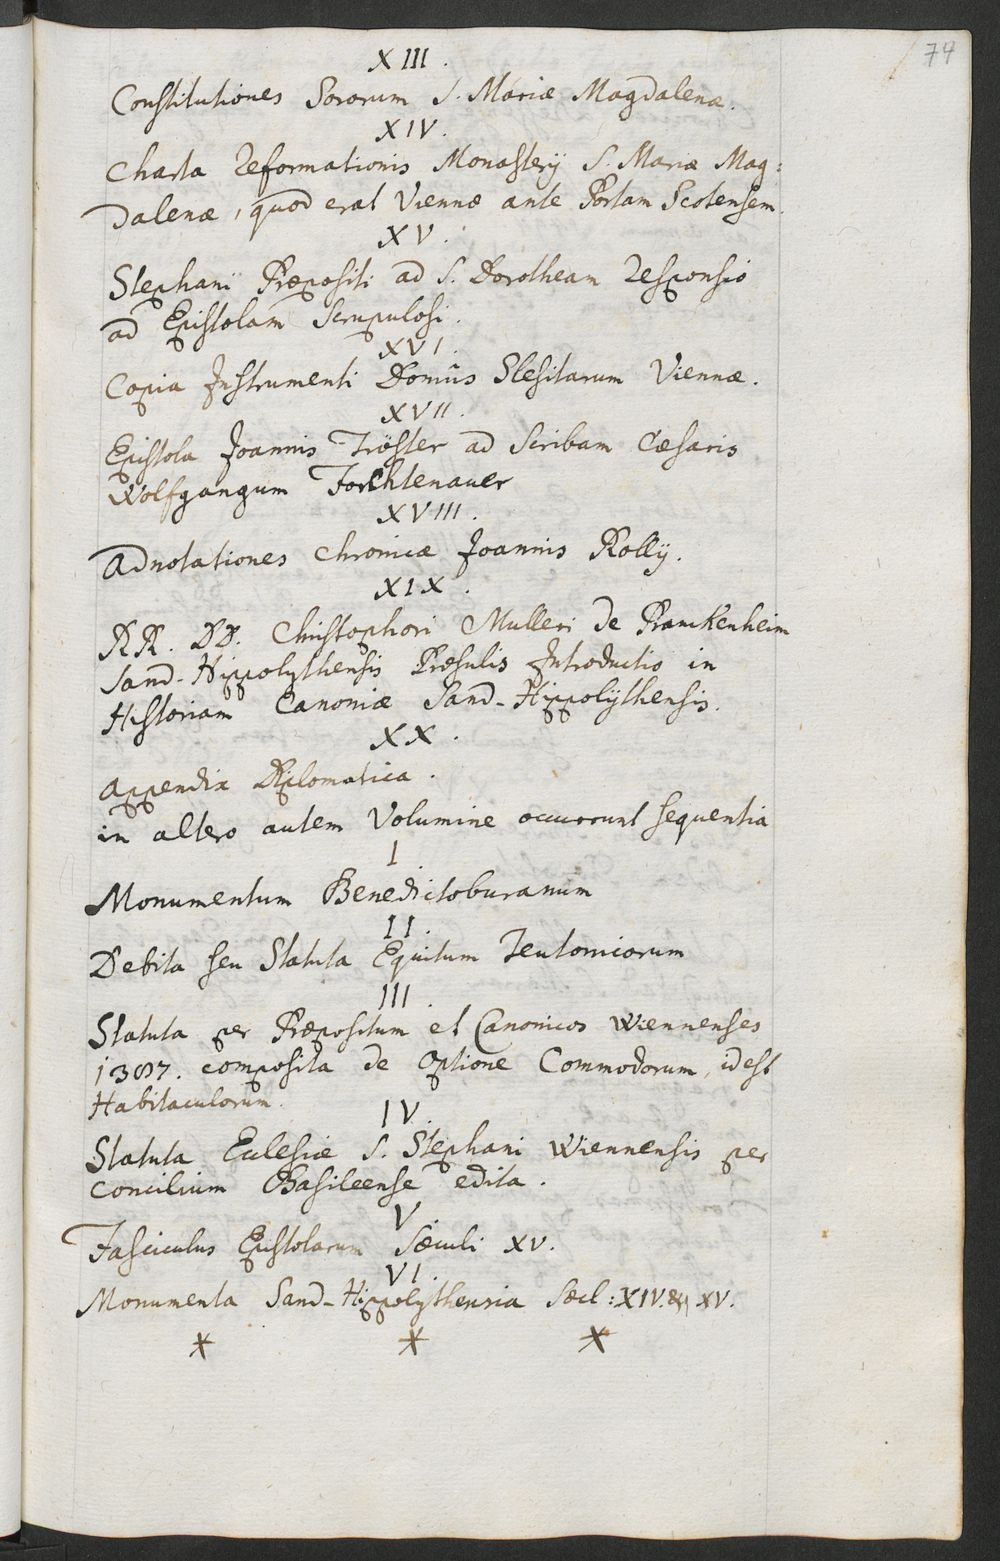 74
XIII.
Constitutiones Sororum S. Mariæ Magdalenæ.
XIV.
Charta Reformationis Monasterij S. Mariæ Mag:
dalenæ, quod erat Viennæ ante Portam Scotensem.
XV.
Stephani Præpositi ad S. Dorotheam Responsio
ad Epistolam Scrupulosi.
XVI.
Copia Instrumenti Domûs Slesitarum Viennæ.
XVII.
Epistola Joannis Tröster ad Scribam Cæsaris
Wolfgangum Forchtenauer
XVIII.
Adnotationes Chronicæ Joannis Rolly.
XIX.
RR. DD. Christophori Mulleri de Pranckenheim
Sand-Hippolythensis Præsulis Introductio in
Historiam Canoniæ Sand-Hippolythensis.
XX.
Appendix Diplomatica.
in altero autem Volumine occurrunt sequentia
I.
Monumentum Benedictoburanum
II.
Debita seu Statuta Equitum Teutonicorum
III.
Statuta per Præpositum et Canonicos Wiennenses
1387. composita de Optione Commodorum, id est
Habitaculorum.
IV.
Statuta Eclesiæ S. Stephani Wiennensis per
Concilium Basileense edita.
V.
Fasciculus Epistolarum Sæculi XV.
VI.
Monumenta Sand-Hippolythensia Sæcl: XIV. & XV.
* * *